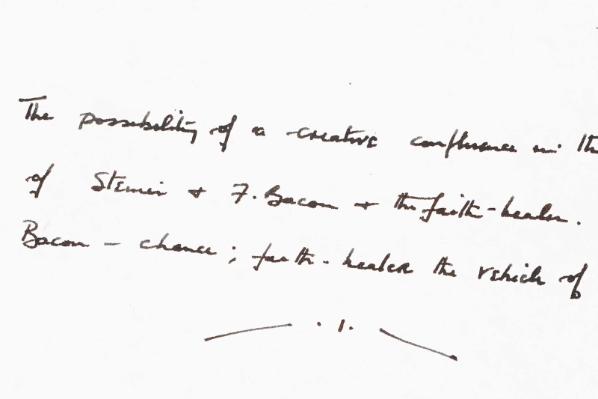 The possibility of a creative confluence in the
of Steiner + F. Bacon + the faith-healer.
Bacon - chance; faith-healer the vehicle of
. 1.